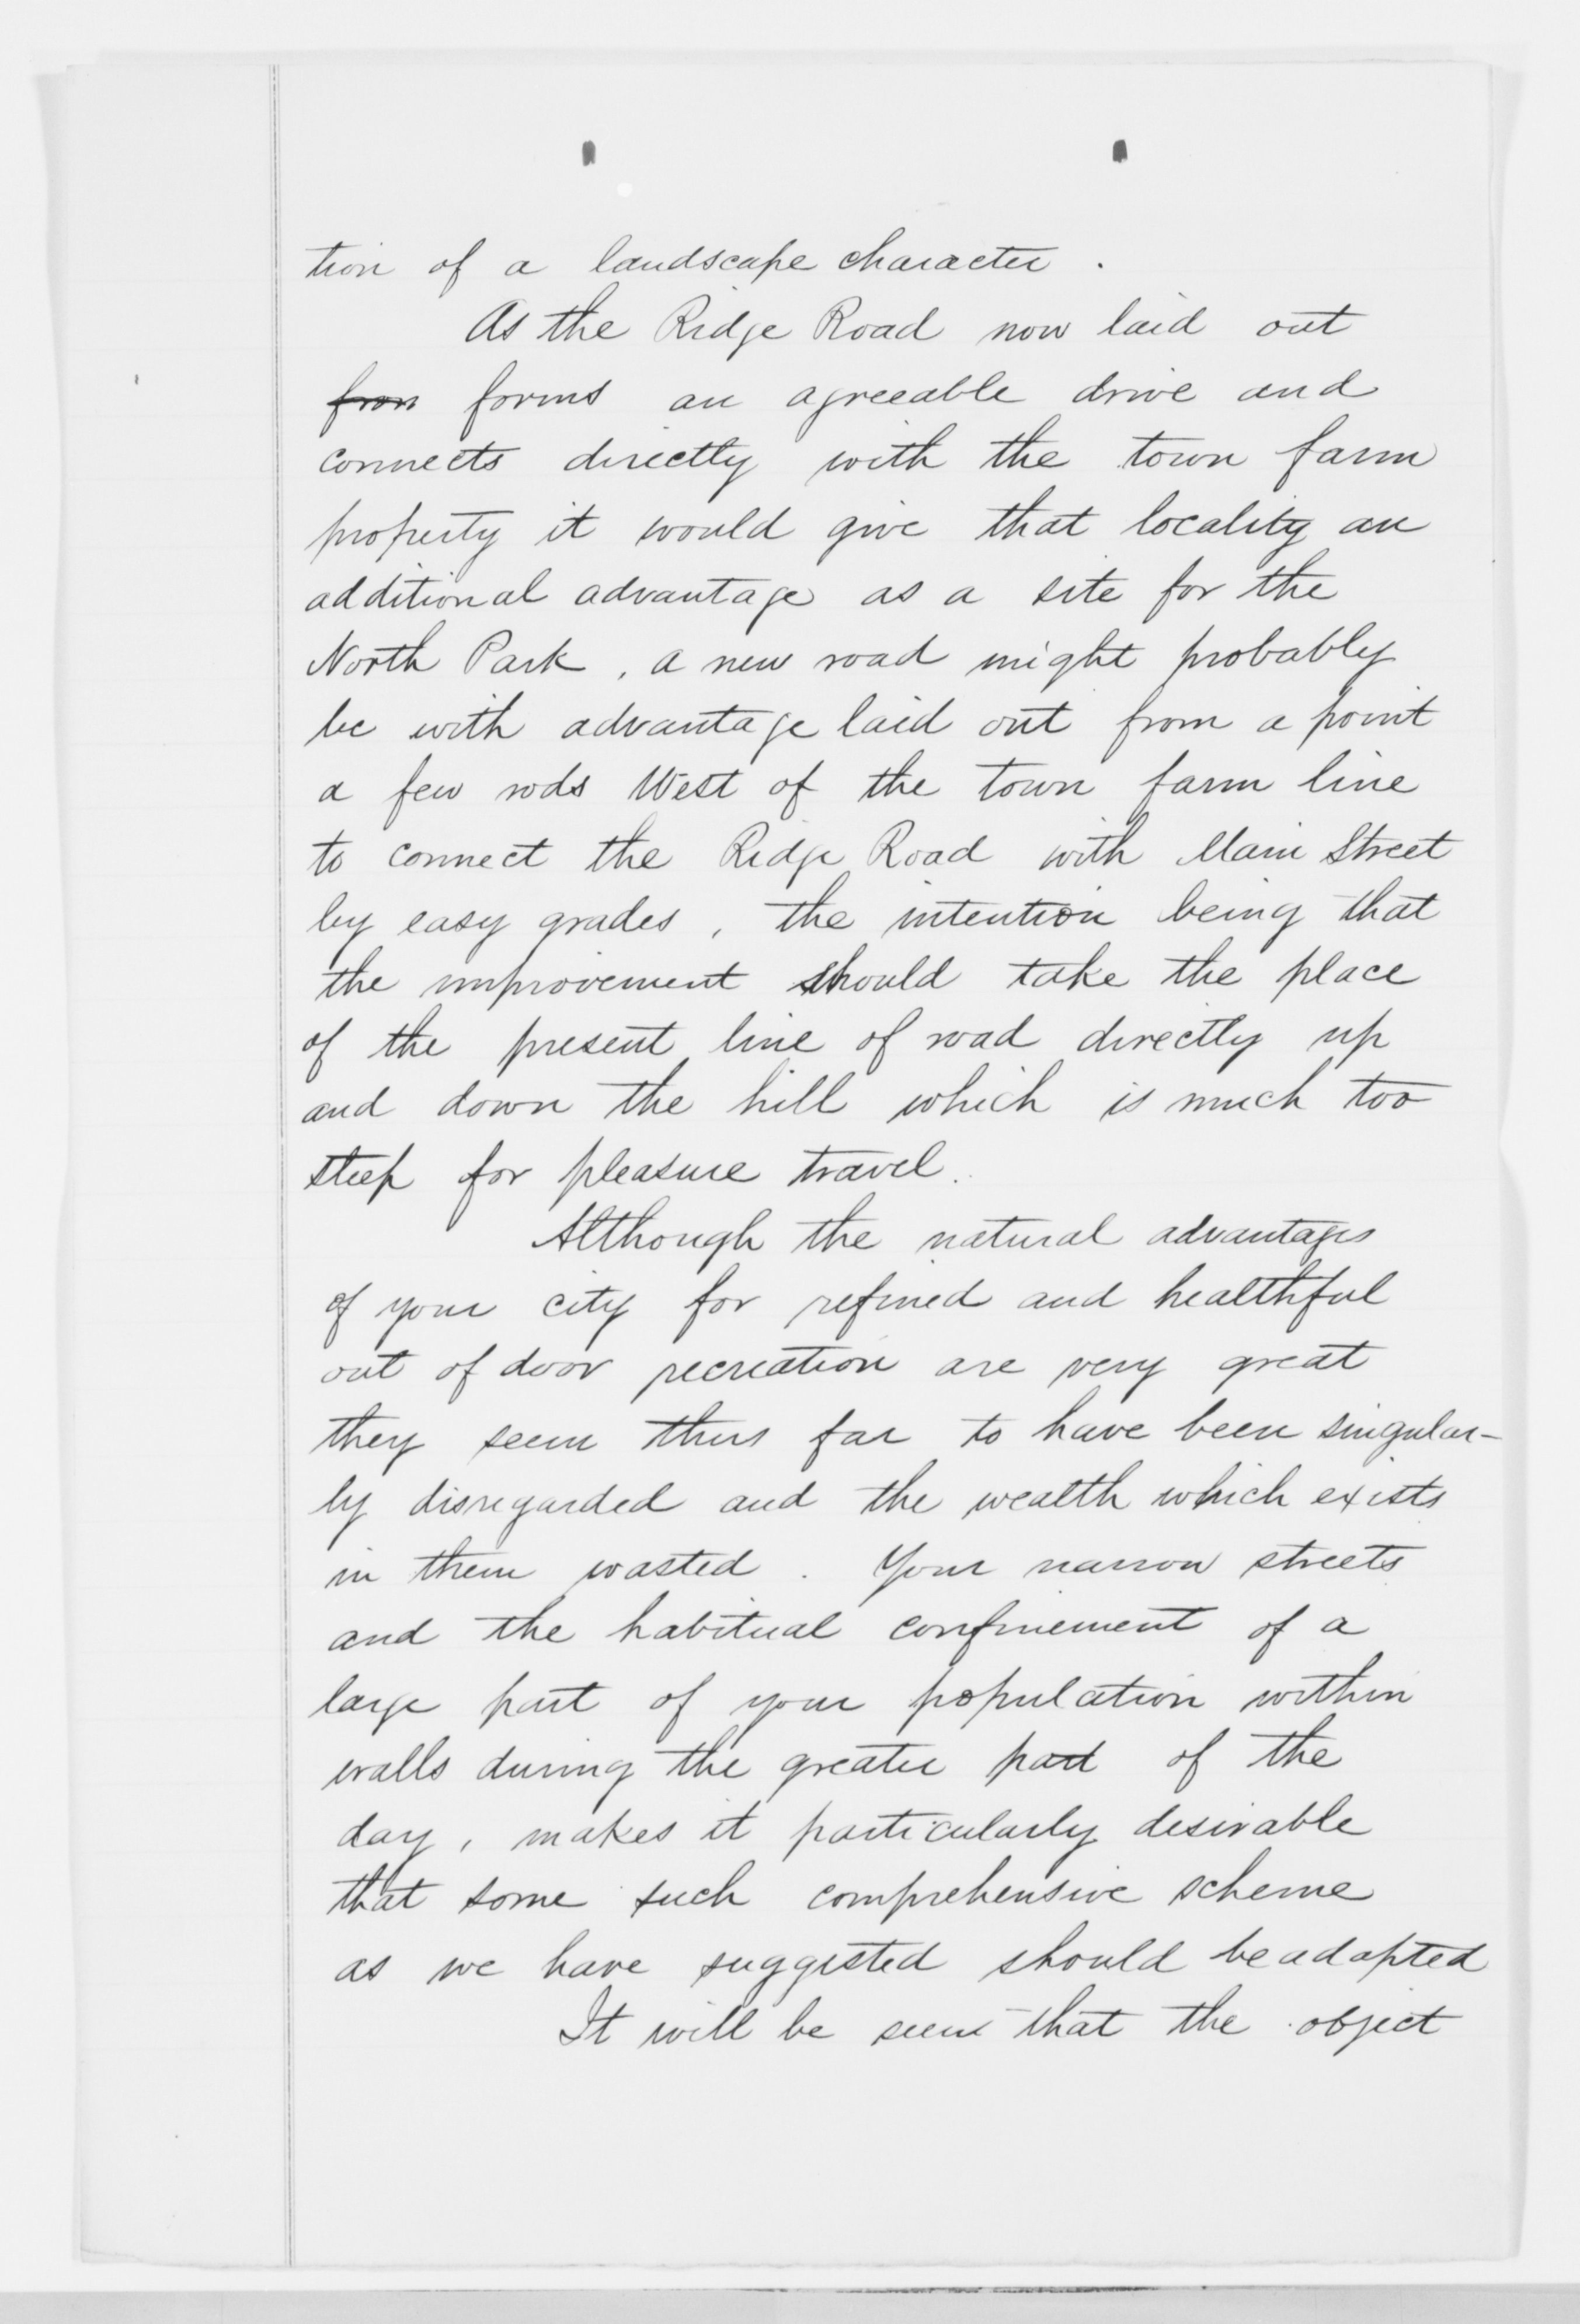 tion of a landscape character .
As the Ridge Road now laid out
fron forms an agreeable drive and
connects directly with the town farm
property it would give that locality an
additional advantage as a site for the
North Park , a new road might probably
be with advantage laid out from a point
a few rods West of the town farm line
to connect the Ridge Road with Main Street
by easy grades , the intention being that
the improvement should take the place
of the present line of road directly up
and down the hill which is much too
steep for pleasure travel .
Although the natural advantages
of your city for refined and healthful
out of door recreation are very great
they seem thus far to have been singular-
ly disregarded and the wealth which exists
in them wasted . Your narrow streets
and the habitual confinement of a
large part of your population within
walls during the greater part of the
day , makes it particularly desirable
that some such comprehensive scheme
as we have suggested should be adopted
It will be seen that the object